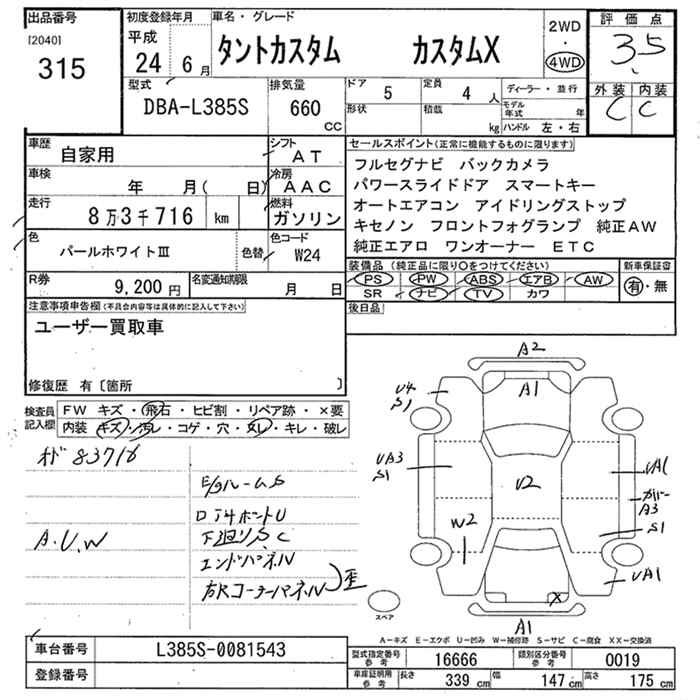 出品番号
[2040]
315
初度登録年月
平成
24年 6月
車名・グレード
タントカスタム カスタムX
2WD
・
4WD
評価点
3.5
外装 内装
C C
型式
DBA-L385S
排気量
660
CC
ドア 5
定員 4 人
形状
積載 kg
ディーラー・並行
モデル年式 年
ハンドル 左・右
車歴
自家用
シフト
AT
車検
年 月( 日)
冷房
AAC
走行
8万3千716 km
燃料
ガソリン
色
パールホワイトⅢ
色替
色コード
W24
R券
9,200円
名変通知期限
月 日
セールスポイント(正常に機能するものに限ります)
フルセグナビ バックカメラ
パワースライドドア スマートキー
オートエアコン アイドリングストップ
キセノン フロントフォグランプ 純正AW
純正エアロ ワンオーナー ETC
装備品(純正品に限り○をつけてください)
PS PW ABS エアB AW
SR ナビ TV カワ
新車保証書
有・無
後日品
注意事項申告欄(不具合内容等は具体的に記入して下さい)
ユーザー買取車
修復歴 有〔箇所 〕
検査員
記入欄
FW キズ・飛石・ヒビ割・リペア跡・×要
内装 キズ・汚レ・コゲ・穴・スレ・キレ・破レ
メド 83716
A.U.W
下廻りS、C
エンドパネル
右Rコーナーパネル
歪
A2
A1
U4
S1
UA3
S1
V2
W2
UA1
カバー
A3
S1
UA1
X
A1
スペア
A-キズ E-エクボ U-凹み W-補修跡 S-サビ C-腐食 XX-交換済
車台番号
L385S-0081543
登録番号
型式指定番号
参考
16666
類別区分番号
参考
0019
車庫証明用
参考
長さ 339 cm
幅 147 cm
高さ 175 cm